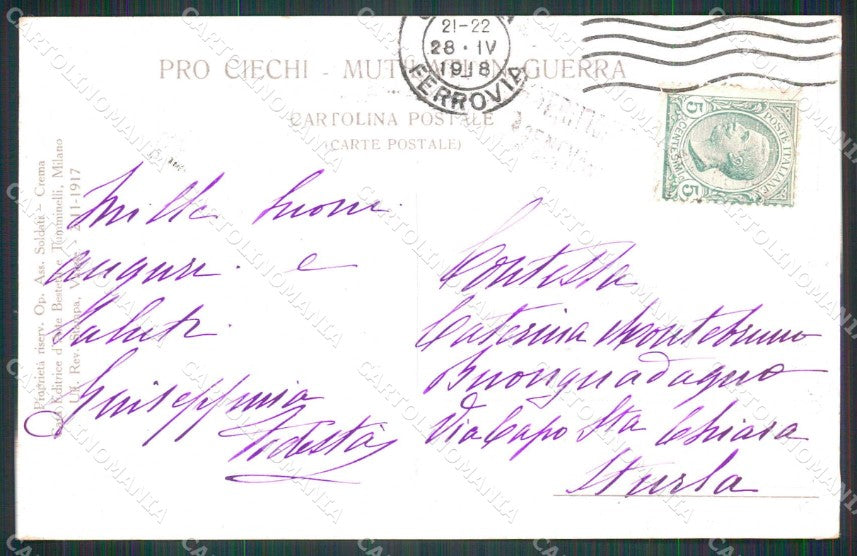 PRO CIECHI - MUTILATI IN GUERRA
CARTOLINA POSTALE
(CARTE POSTALE)
21-22
28 · IV
1918
FERROVIA
POSTE ITALIANE
5 CENTESIMI 5
Proprietà riserv. Op. Ass. Soldati - Crema
Editrice d'Arte Bestetti e Tumminelli, Milano
Uff. Rev. Stampa, 2-11-1917
Mille buoni
auguri e
saluti
Giuseppina
Podestà
Contessa
Caterina Montebruno
Buonguadagno
Via Capo Sta Chiara
Sturla
CARTOLINOMANIA